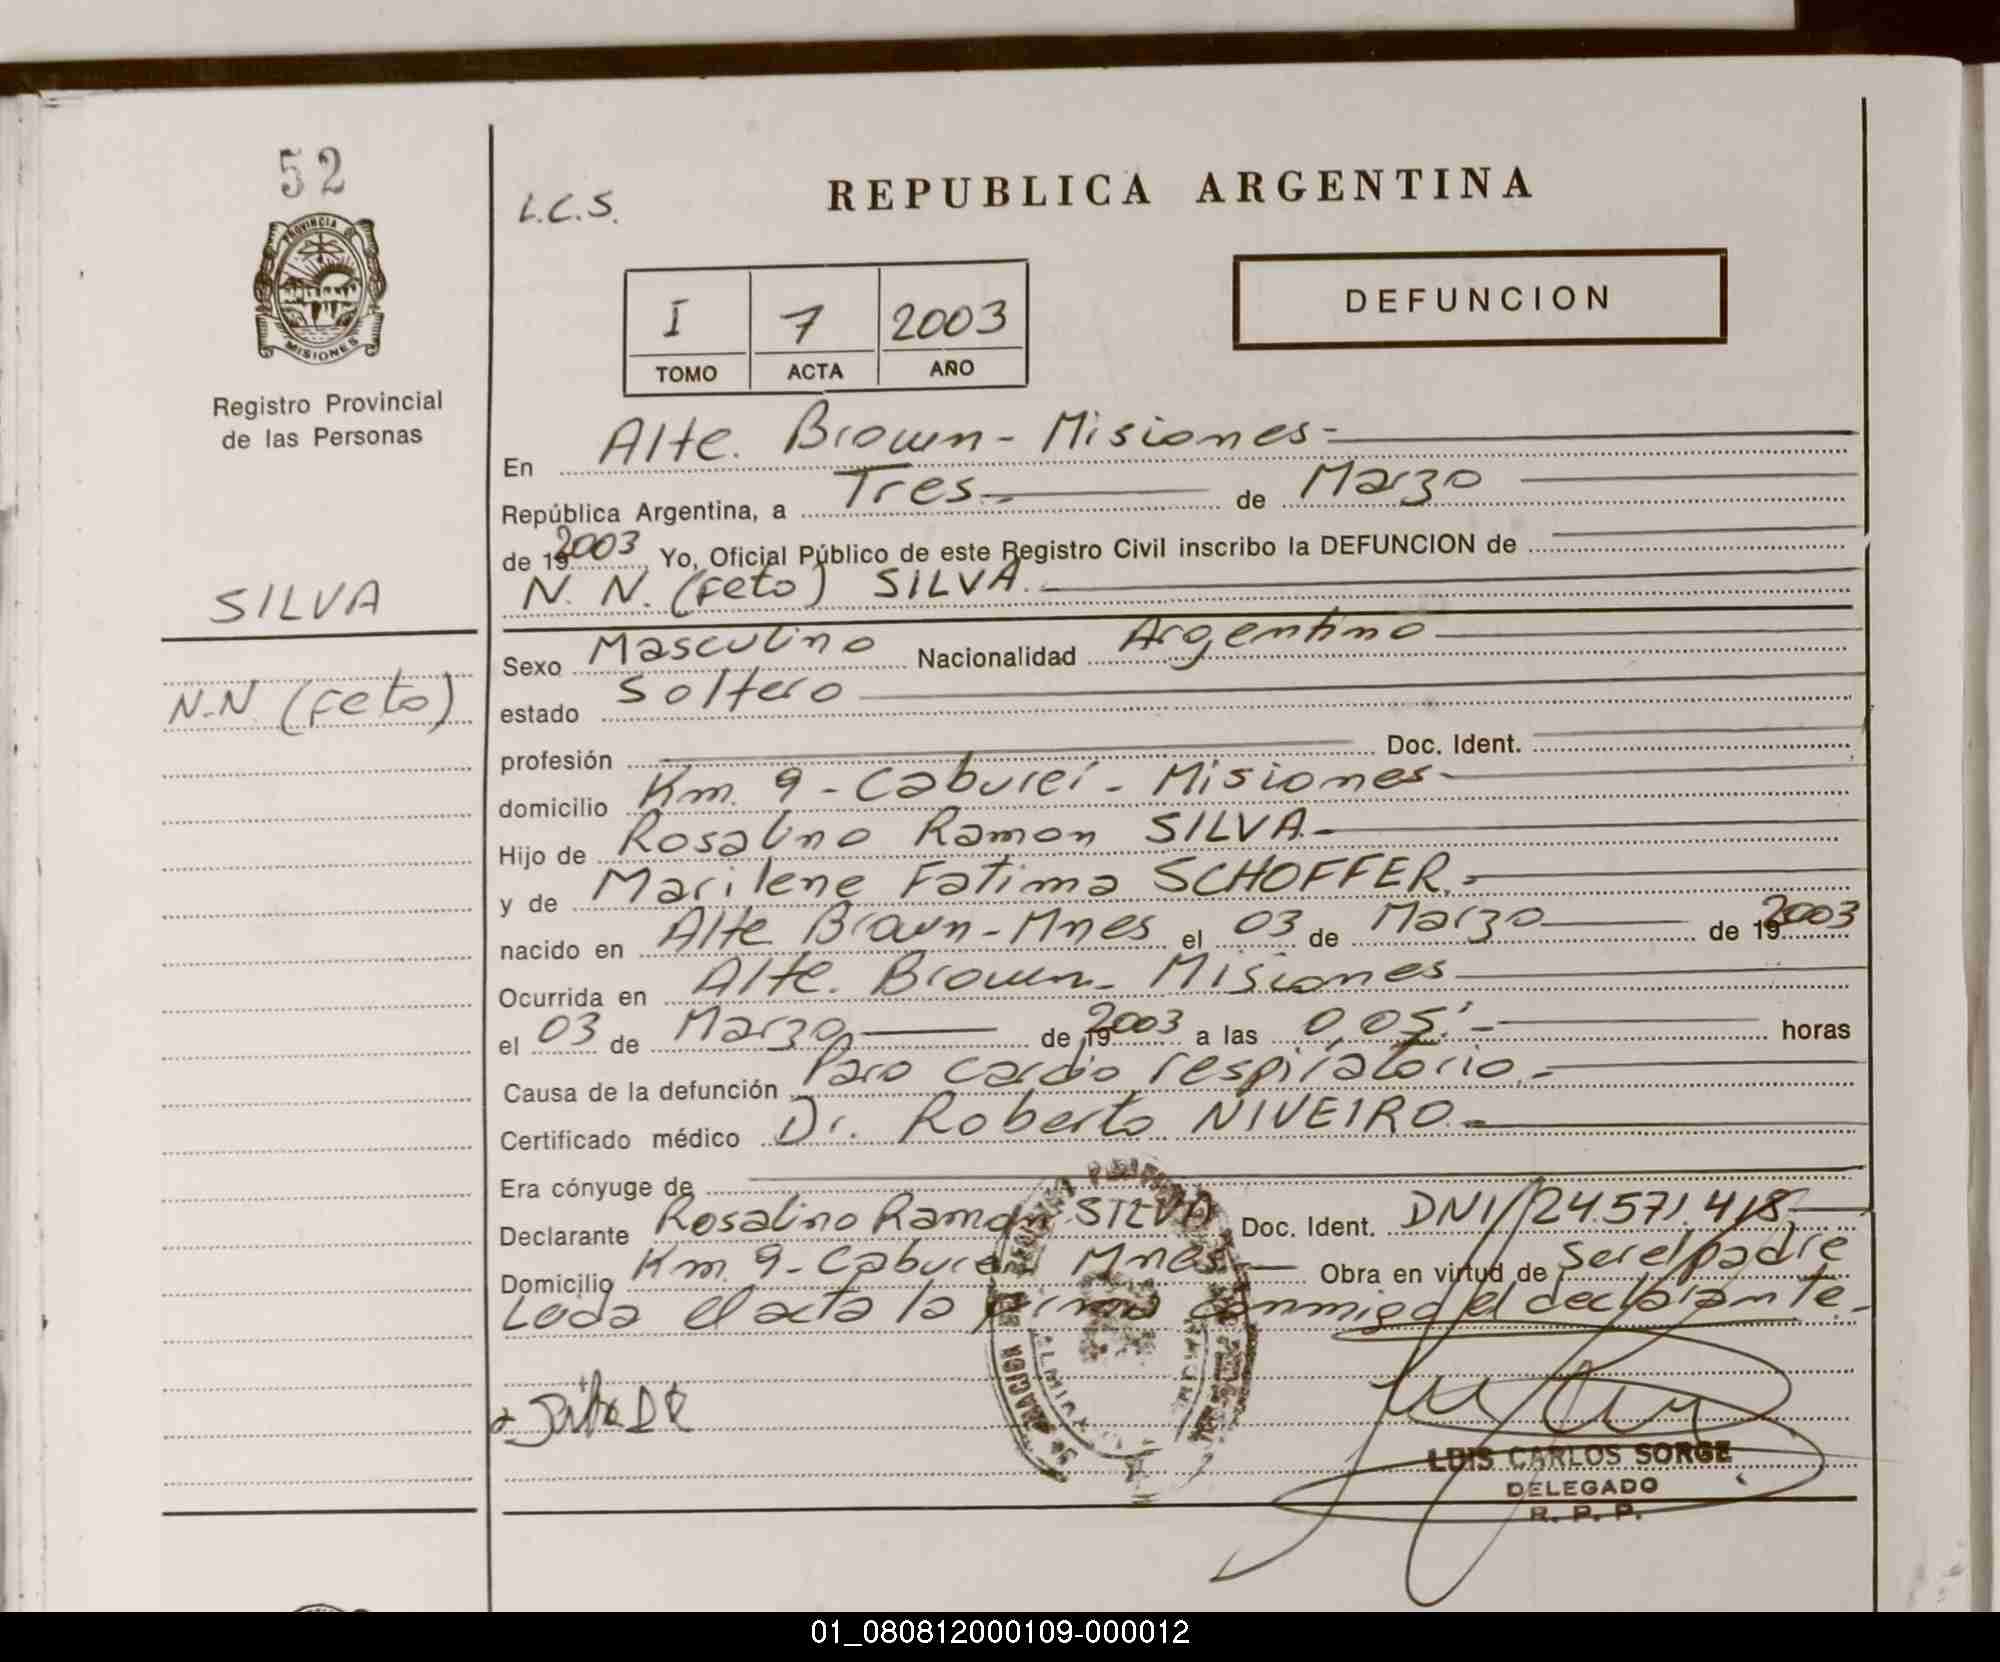 52
PROVINCIA DE
MISIONES
Registro Provincial
de las Personas
SILVA
N.N (feto)
L.C.S.
REPUBLICA ARGENTINA
I 7 2003
TOMO ACTA AÑO
DEFUNCION
En Alte. Brown - Misiones-
República Argentina, a Tres de Marzo
de 19 2003 Yo, Oficial Público de este Registro Civil inscribo la DEFUNCION de
N. N. (feto) SILVA.
Sexo Masculino Nacionalidad Argentino
estado Soltero
profesión Doc. Ident.
domicilio Km. 9 - Cabureí - Misiones
Hijo de Rosalino Ramon SILVA.-
y de Marilene Fatima SCHOFFER.-
nacido en Alte Brown - Mnes el 03 de Marzo de 19 2003
Ocurrida en Alte. Brown - Misiones
el 03 de Marzo de 19 2003 a las 0,05'.- horas
Causa de la defunción Paro cardio respiratorio.-
Certificado médico Dr. Roberto NIVEIRO.-
Era cónyuge de
Declarante Rosalino Ramon SILVA Doc. Ident. DNI/24.571.418,-
Domicilio Km. 9 - Cabureí Mnes.- Obra en virtud de Ser el padre
Leda el acta la firma conmigo el declarante.-
LUIS CARLOS SORGE
DELEGADO
R. P. P.
01_080812000109-000012